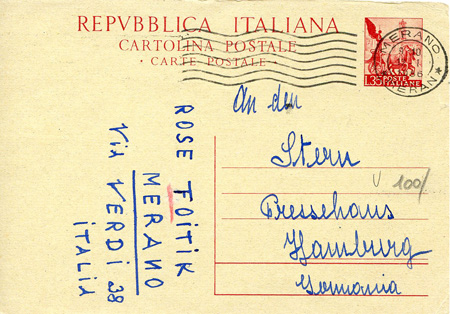 REPVBBLICA ITALIANA
CARTOLINA POSTALE
• CARTE POSTALE •
MERANO
MERAN
L.35 POSTE
ITALIANE
An den
Stern
Pressehaus
Hamburg
Germania
V 100/
ROSE TOITIK
MERANO
VIA VERDI 38
ITALIA